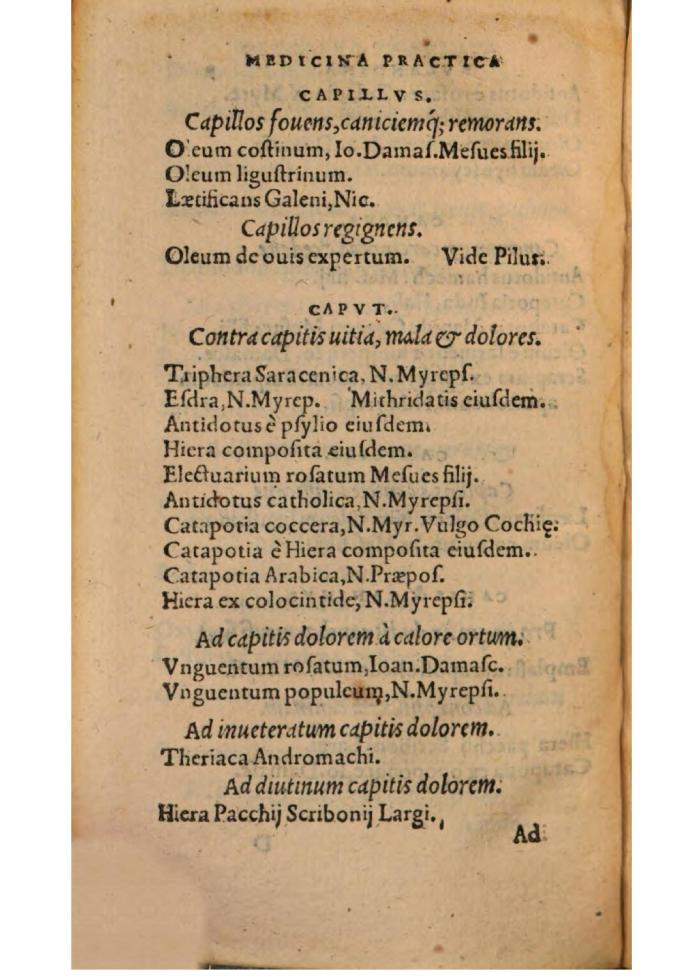 MEDICINA PRACTICA
CAPILLVS.
Capillos fouens, caniciemq́; remorans.
Oleum coſtinum, Io. Damaſ. Meſues filij.
Oleum liguſtrinum.
Lætificans Galeni, Nic.
Capillos regignens.
Oleum de ouis expertum. Vide Pilus.
CAPVT.
Contra capitis uitia, mala & dolores.
Triphera Saracenica, N. Myrepſ.
Eſdra, N. Myrep. Mithridatis eiuſdem.
Antidotus è pſylio eiuſdem.
Hiera compoſita eiuſdem.
Electuarium roſatum Meſues filij.
Antidotus catholica, N. Myrepſi.
Catapotia coccera, N. Myr. Vulgo Cochię.
Catapotia è Hiera compoſita eiuſdem.
Catapotia Arabica, N. Præpoſ.
Hiera ex colocintide, N. Myrepſi.
Ad capitis dolorem à calore ortum.
Vnguentum roſatum, Ioan. Damaſc.
Vnguentum populeum, N. Myrepſi.
Ad inueteratum capitis dolorem.
Theriaca Andromachi.
Ad diutinum capitis dolorem.
Hiera Pacchij Scribonij Largi.
Ad